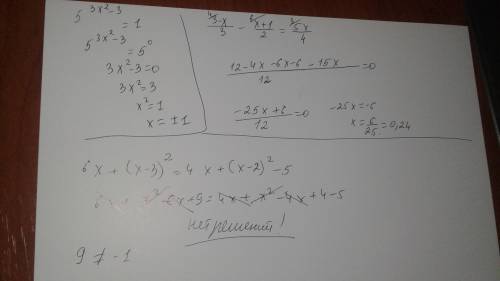 5^(3x²-3) = 1
5^(3x²-3) = 5⁰
3x²-3=0
3x²=3
x²=1
x = ±1
⁴⁾(3-x)/3 - ⁶⁾(x+1)/2 = ³⁾5x/4
(12-4x-6x-6-15x)/12 =0
(-25x+6)/12 =0
-25x=-6
x=6/25=0,24
6x+(x-3)²=4x+(x-2)²-5
6x + x² - 6x+9=4x+x²-4x+4-5
нет решений!
9 ≠ -1